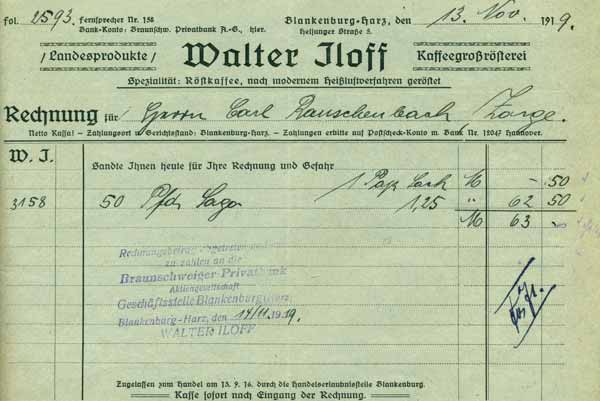 fol. 2593. Fernsprecher Nr. 158 Blankenburg-Harz, den 13. Nov. 1919.
Bank-Konto: Braunschw. Privatbank A.-G., hier. Helsunger Straße 5.
/ Landesprodukte / Walter Iloff Kaffeegroßrösterei
Spezialität: Röstkaffee, nach modernem Heißluftverfahren geröstet
Rechnung für Herrn Carl Rauschenbach / Zorge.
Netto Kassa! – Zahlungsort u. Gerichtsstand: Blankenburg-Harz. – Zahlungen erbitte auf Postscheck-Konto m. Bank Nr. 12047 Hannover.
W. I. Sandte Ihnen heute für Ihre Rechnung und Gefahr
1 Pap. Sack M – 50
3158 50 Pfd. Sago 1,25 " 62 50
M 63 –
Rechnungsbetrag abgetreten und
zu zahlen an die
Braunschweiger Privatbank
Aktiengesellschaft
Geschäftsstelle Blankenburg (Harz)
Blankenburg-Harz, den 14/11. 1919.
WALTER ILOFF
Zugelassen zum Handel am 13. 9. 16. durch die Handelserlaubnisstelle Blankenburg.
Kasse sofort nach Eingang der Rechnung.